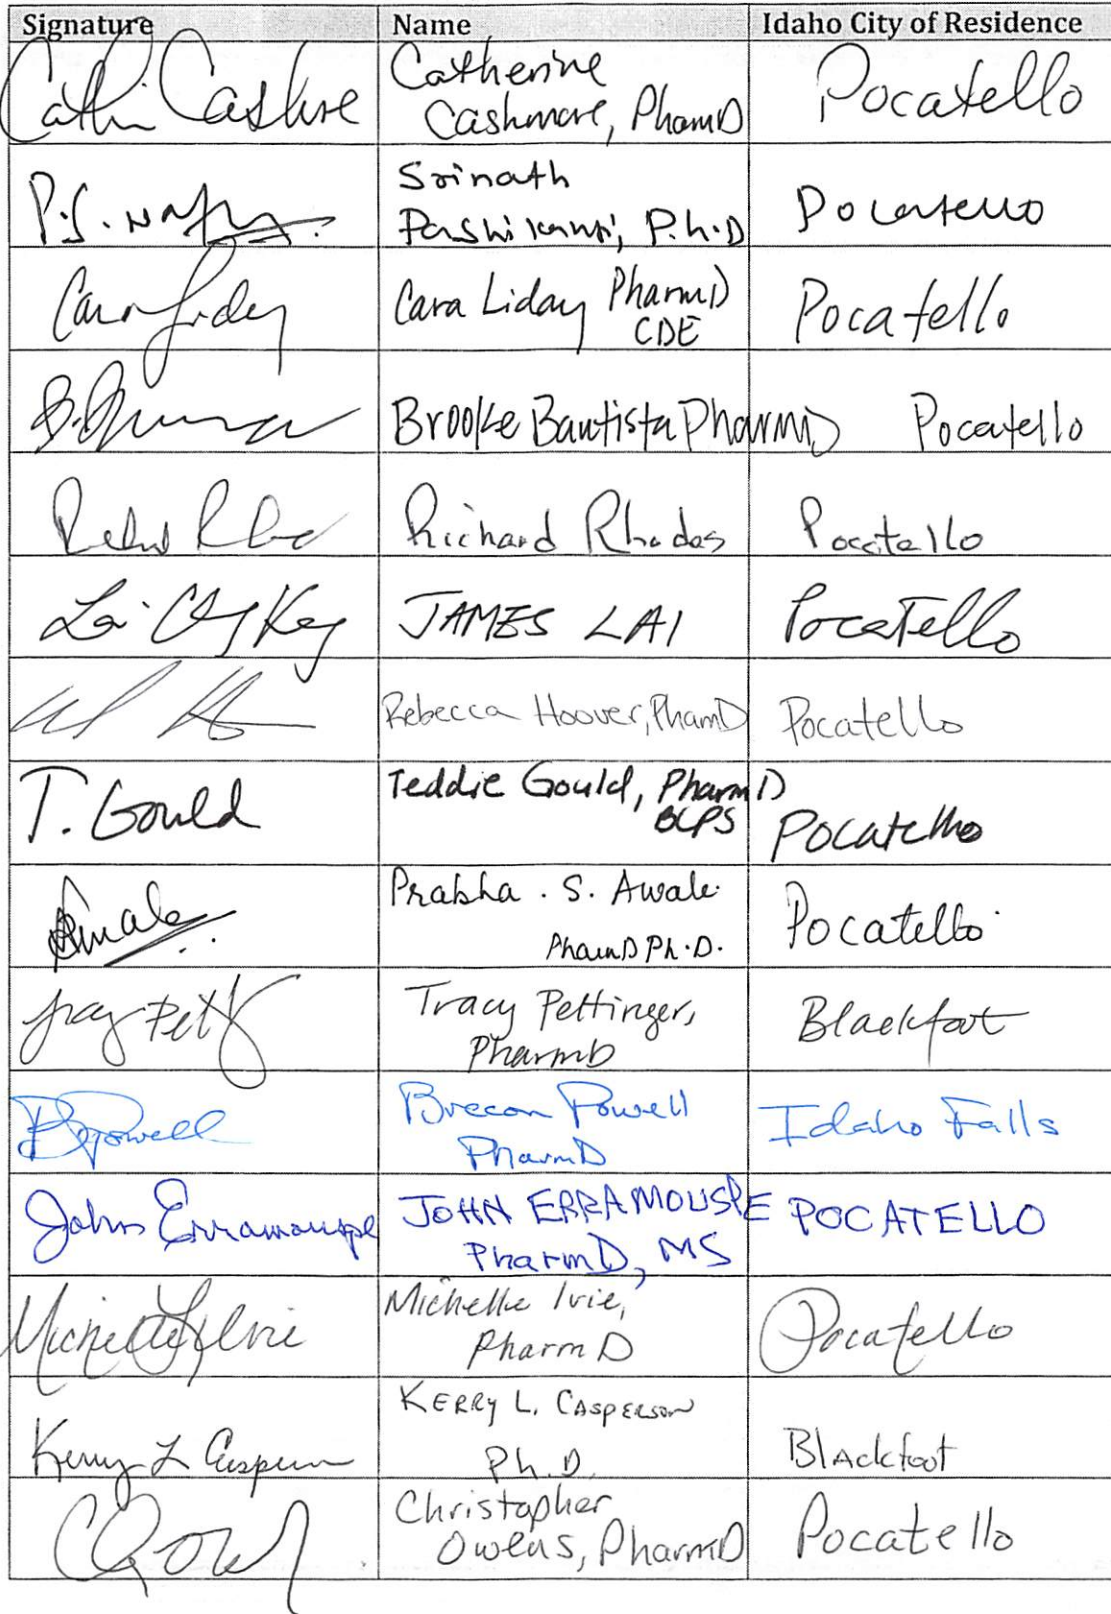 Signature Name Idaho City of Residence
Catherine
Cashmore, PharmD Pocatello
Srinath
P.S. Pashikanti, P.h.D Pocatello
Cara Liday Cara Liday PharmD Pocatello
CDE
Brooke Bautista PharmD Pocatello
Richard Rhodes Pocatello
JAMES LAI Pocatello
Rebecca Hoover, PharmD Pocatello
T. Gould Teddie Gould, PharmD
BCPS Pocatello
Prabha . S. Awale
PharmD Ph.D. Pocatello
Tracy Pettinger, Blackfoot
PharmD
Powell Brecon Powell Idaho Falls
PharmD
John Erramouspe JOHN ERRAMOUSPE POCATELLO
PharmD, MS
Michelle Ivie Michelle Ivie, Pocatello
PharmD
KERRY L. CASPERSON
Kerry L Casperson Ph.D. Blackfoot
Christopher
Owens, PharmD Pocatello